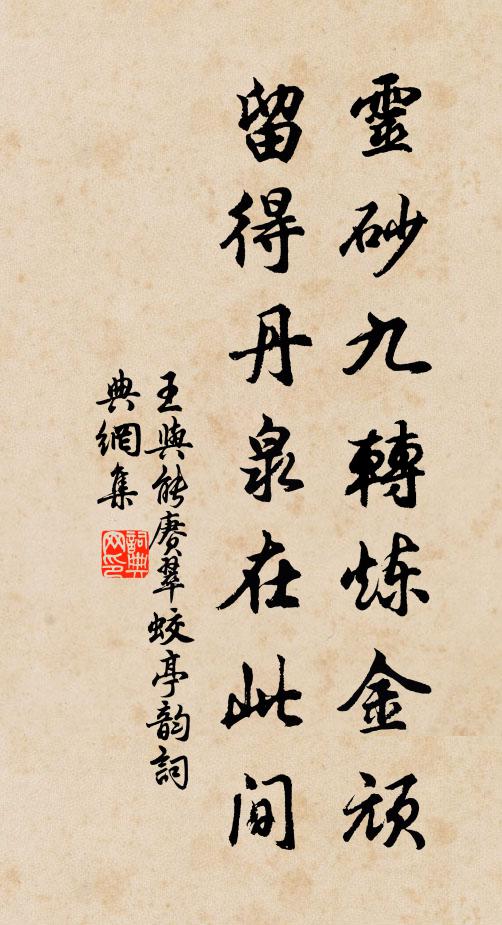 靈砂九轉炼金頑
留得丹泉在此間
王與能賡翠蛟亭韵詞
典網集
詞典
网印